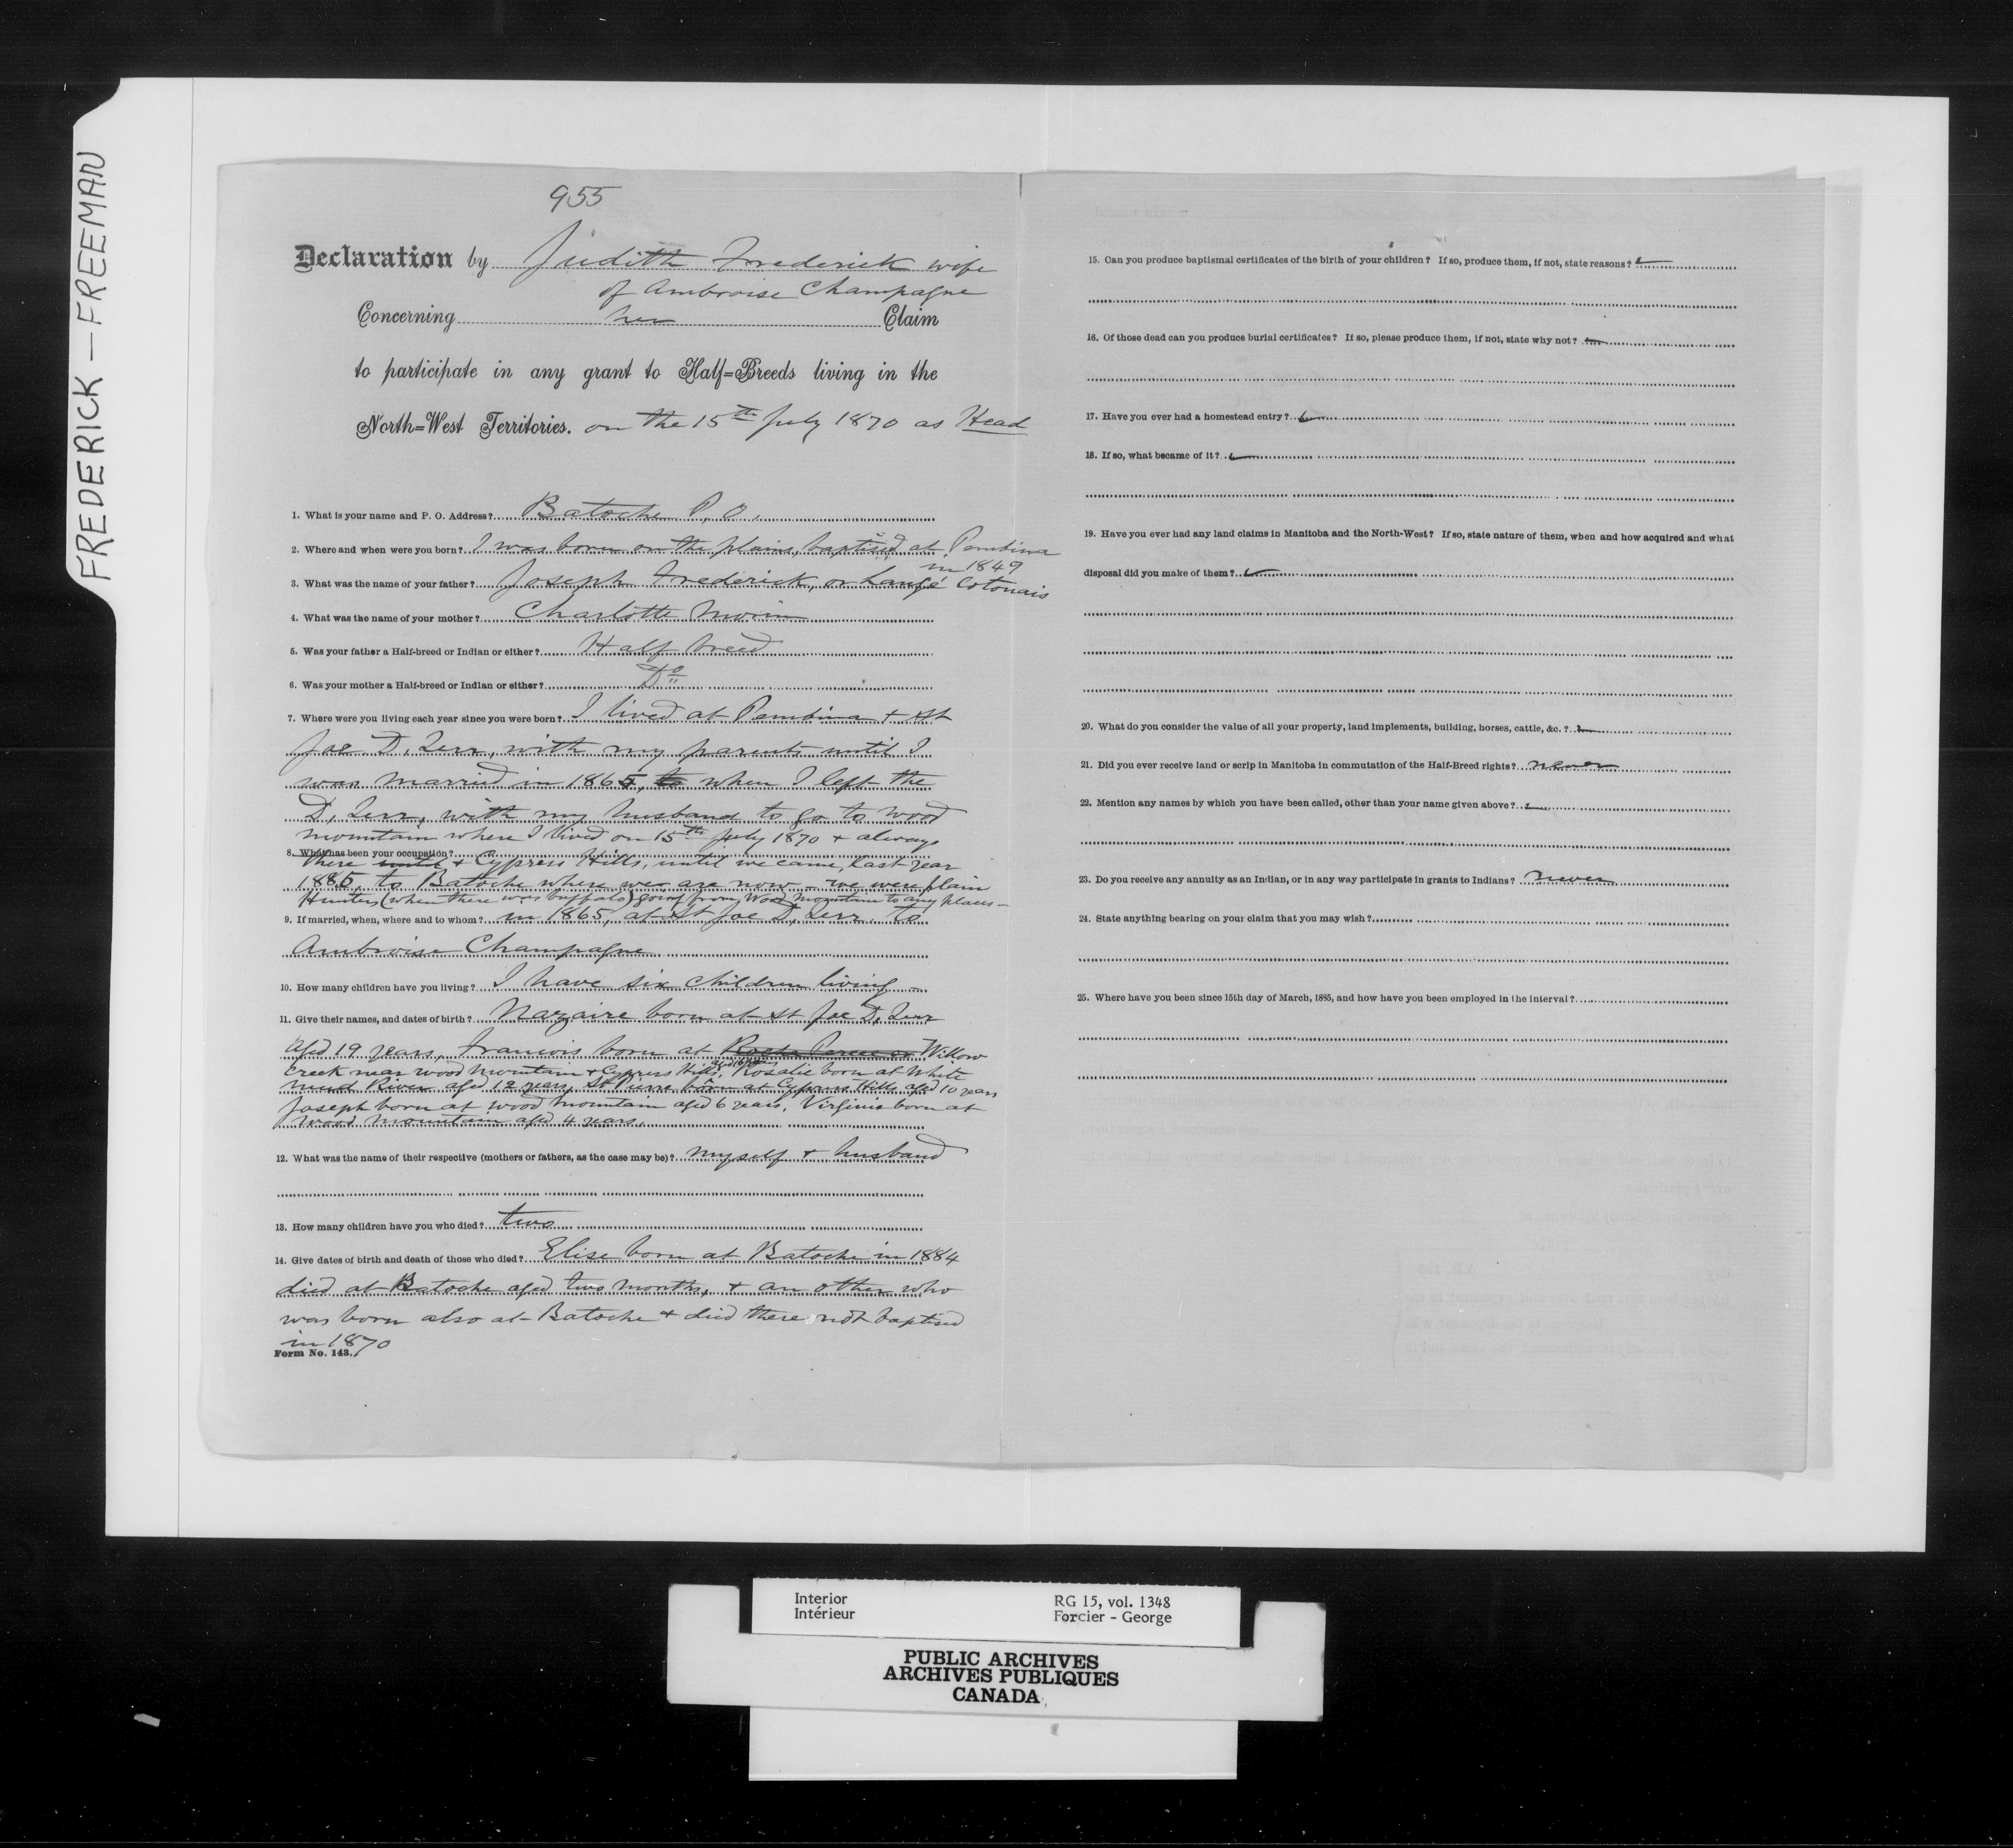 FREDERICK — FREEMAN
955
Declaration by Judith Frederick wife
of Ambroise Champagne
Concerning her Claim
to participate in any grant to Half=Breeds living in the
North=West Territories. on the 15th July 1870 as Head
1. What is your name and P. O. Address? Batoche P. O.
2. Where and when were you born? I was born on the plains, baptised at Pembina
in 1849
3. What was the name of your father? Joseph Frederick, or Langé Cotonais
4. What was the name of your mother? Charlotte Morin
5. Was your father a Half-breed or Indian or either? Half breed
6. Was your mother a Half-breed or Indian or either? Do
7. Where were you living each year since you were born? I lived at Pembina + St
Joe D. Terr, with my parents until I
was married in 1865, to when I left the
D. Terr, with my husband to go to Wood
mountain where I lived on 15th July 1870 + always
8. What has been your occupation?
there until + Cypress Hills, until we came, last year
1885, to Batoche where we are now – we were plain
Hunters (when there was buffalo) going from Wood mountain to any places –
9. If married, when, where and to whom? in 1865, at St Joe D. Terr. to
Ambroise Champagne
10. How many children have you living? I have six children living –
11. Give their names, and dates of birth? Nazaire born at St Joe D. Terr
aged 19 years, Francois born at Roche Percee or Willow
Creek near Wood Mountain + Cypress Hills, Rosalie born at White
mud River aged 12 years, St Pierre born at Cypress Hills aged 10 years
Joseph born at Wood Mountain aged 6 years, Virginie born at
Wood Mountain aged 4 years.
12. What was the name of their respective (mothers or fathers, as the case may be)? myself + husband
13. How many children have you who died? two
14. Give dates of birth and death of those who died? Elise born at Batoche in 1884
died at Batoche aged two months, + an other who
was born also at Batoche + died there not baptised
in 1870
Form No. 143.
15. Can you produce baptismal certificates of the birth of your children? If so, produce them, if not, state reasons?
16. Of those dead can you produce burial certificates? If so, please produce them, if not, state why not?
17. Have you ever had a homestead entry?
18. If so, what became of it?
19. Have you ever had any land claims in Manitoba and the North-West? If so, state nature of them, when and how acquired and what
disposal did you make of them?
20. What do you consider the value of all your property, land implements, building, horses, cattle, &c.?
21. Did you ever receive land or scrip in Manitoba in commutation of the Half-Breed rights? never
22. Mention any names by which you have been called, other than your name given above?
23. Do you receive any annuity as an Indian, or in any way participate in grants to Indians? never
24. State anything bearing on your claim that you may wish?
25. Where have you been since 15th day of March, 1885, and how have you been employed in the interval?
Interior
Intérieur
RG 15, vol. 1348
Forcier - George
PUBLIC ARCHIVES
ARCHIVES PUBLIQUES
CANADA